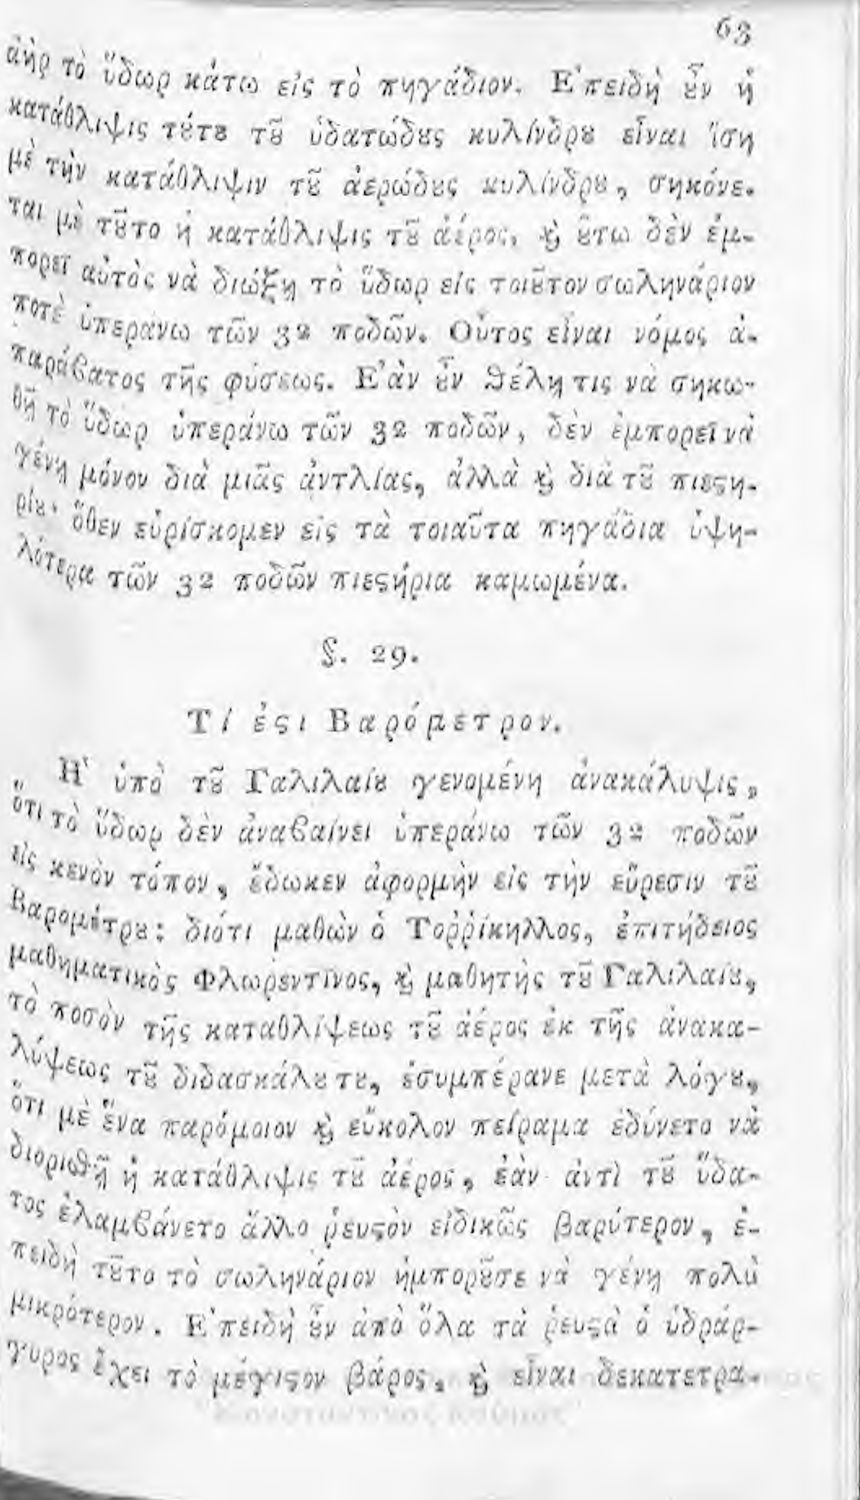 63
ἀὴρ τὸ ὕδωρ κάτω εἰς τὸ πηγάδιον. Ἐπειδὴ ȣ̓͂ν ἡ
κατάθλιψις τȣ́τȣ τȣ͂ ὑδατώδȣς κυλίνδρȣ εἶναι ἴση
μὲ τὴν κατάθλιψιν τȣ͂ ἀερώδȣς κυλίνδρȣ, σηκόνε-
ται μὲ τȣ͂το ἡ κατάθλιψις τȣ͂ ἀέρος, ϗ ȣ̔́τω δὲν ἐμ-
πορεῖ αὐτὸς νὰ διώξῃ τὸ ὕδωρ εἰς τοιȣ͂τον σωληνάριον
ποτὲ ὑπεράνω τῶν 32 ποδῶν. Οὗτος εἶναι νόμος ἀ-
παράβατος τῆς φύσεως. Ἐὰν ȣ̓͂ν θέλῃ τις νὰ σηκω-
θῇ τὸ ὕδωρ ὑπεράνω τῶν 32 ποδῶν, δὲν ἐμπορεῖ νὰ
γένῃ μόνον διὰ μιᾶς ἀντλίας, ἀλλὰ ϗ διὰ τȣ͂ πιεϛη-
ρίȣ· ὅθεν εὑρίσκομεν εἰς τὰ τοιαῦτα πηγάδια ὑψη-
λότερα τῶν 32 ποδῶν πιεϛήρια καμωμένα.
§. 29.
Τί ἐϛι Βαρόμετρον.
Ἡ ὑπὸ τȣ͂ Γαλιλαίȣ γενομένη ἀνακάλυψις,
ὅτι τὸ ὕδωρ δὲν ἀναβαίνει ὑπεράνω τῶν 32 ποδῶν
εἰς κενὸν τόπον, ἔδωκεν ἀφορμὴν εἰς τὴν εὕρεσιν τȣ͂
Βαρομέτρȣ: διότι μαθὼν ὁ Τοῤῥίκηλλος, ἐπιτήδειος
μαθηματικὸς Φλωρεντῖνος, ϗ μαθητὴς τȣ͂ Γαλιλαίȣ,
τὸ ποσὸν τῆς καταθλίψεως τȣ͂ ἀέρος ἐκ τῆς ἀνακα-
λύψεως τȣ͂ διδασκάλȣ τȣ, ἐσυμπέρανε μετὰ λόγȣ,
ὅτι μὲ ἕνα παρόμοιον ϗ εὔκολον πείραμα ἐδύνετο νὰ
διορισθῇ ἡ κατάθλιψις τȣ͂ ἀέρος, ἐὰν ἀντὶ τȣ͂ ὕδα-
τος ἐλαμβάνετο ἄλλο ῥευϛὸν εἰδικῶς βαρύτερον, ἐ-
πειδὴ τȣ͂το τὸ σωληνάριον ἠμπορȣ͂σε νὰ γένῃ πολὺ
μικρότερον. Ἐπειδὴ ȣ̓͂ν ἀπὸ ὅλα τὰ ῥευϛὰ ὁ ὑδράρ-
γυρος ἔχει τὸ μέγιϛον βάρος, ϗ εἶναι δεκατετρα-